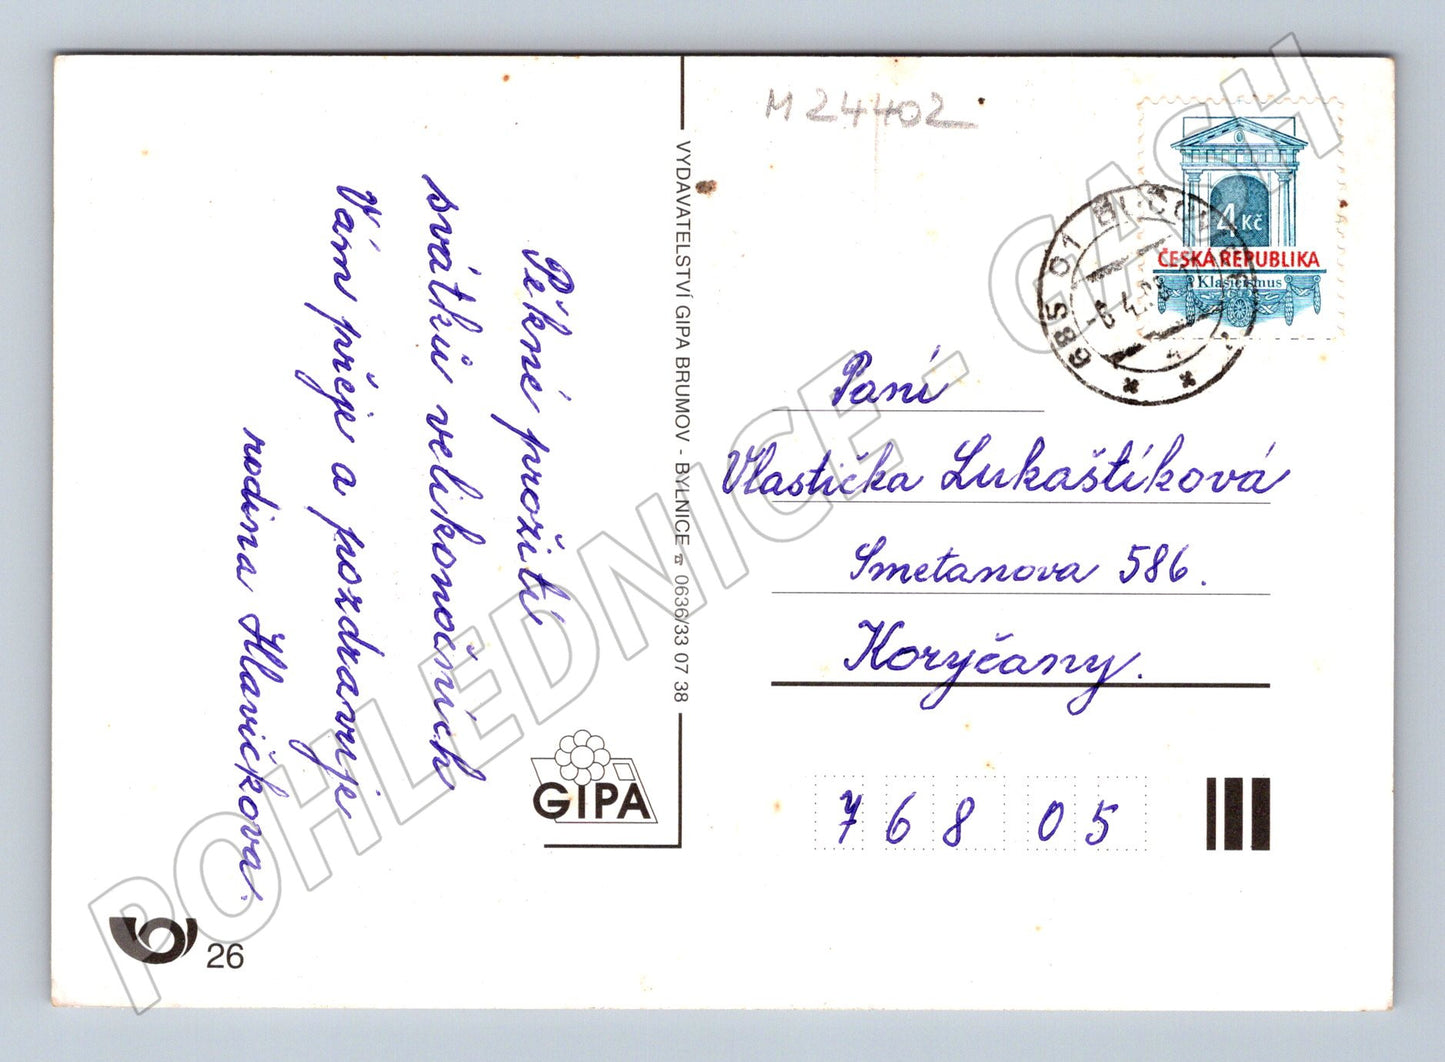 M 24402
4 Kč
ČESKÁ REPUBLIKA
Klasicismus
685 01 BUČOV
-6.4.
Pěkné prožití
svátků velikonočních
Vám přeje a pozdravuje
rodina Hlavičkova.
VYDAVATELSTVÍ GIPA BRUMOV - BYLNICE ☎ 0636/33 07 38
Paní
Vlastička Lukaštíková
Smetanova 586.
Koryčany.
768 05
GIPA
26
POHLEDNICE - GASH